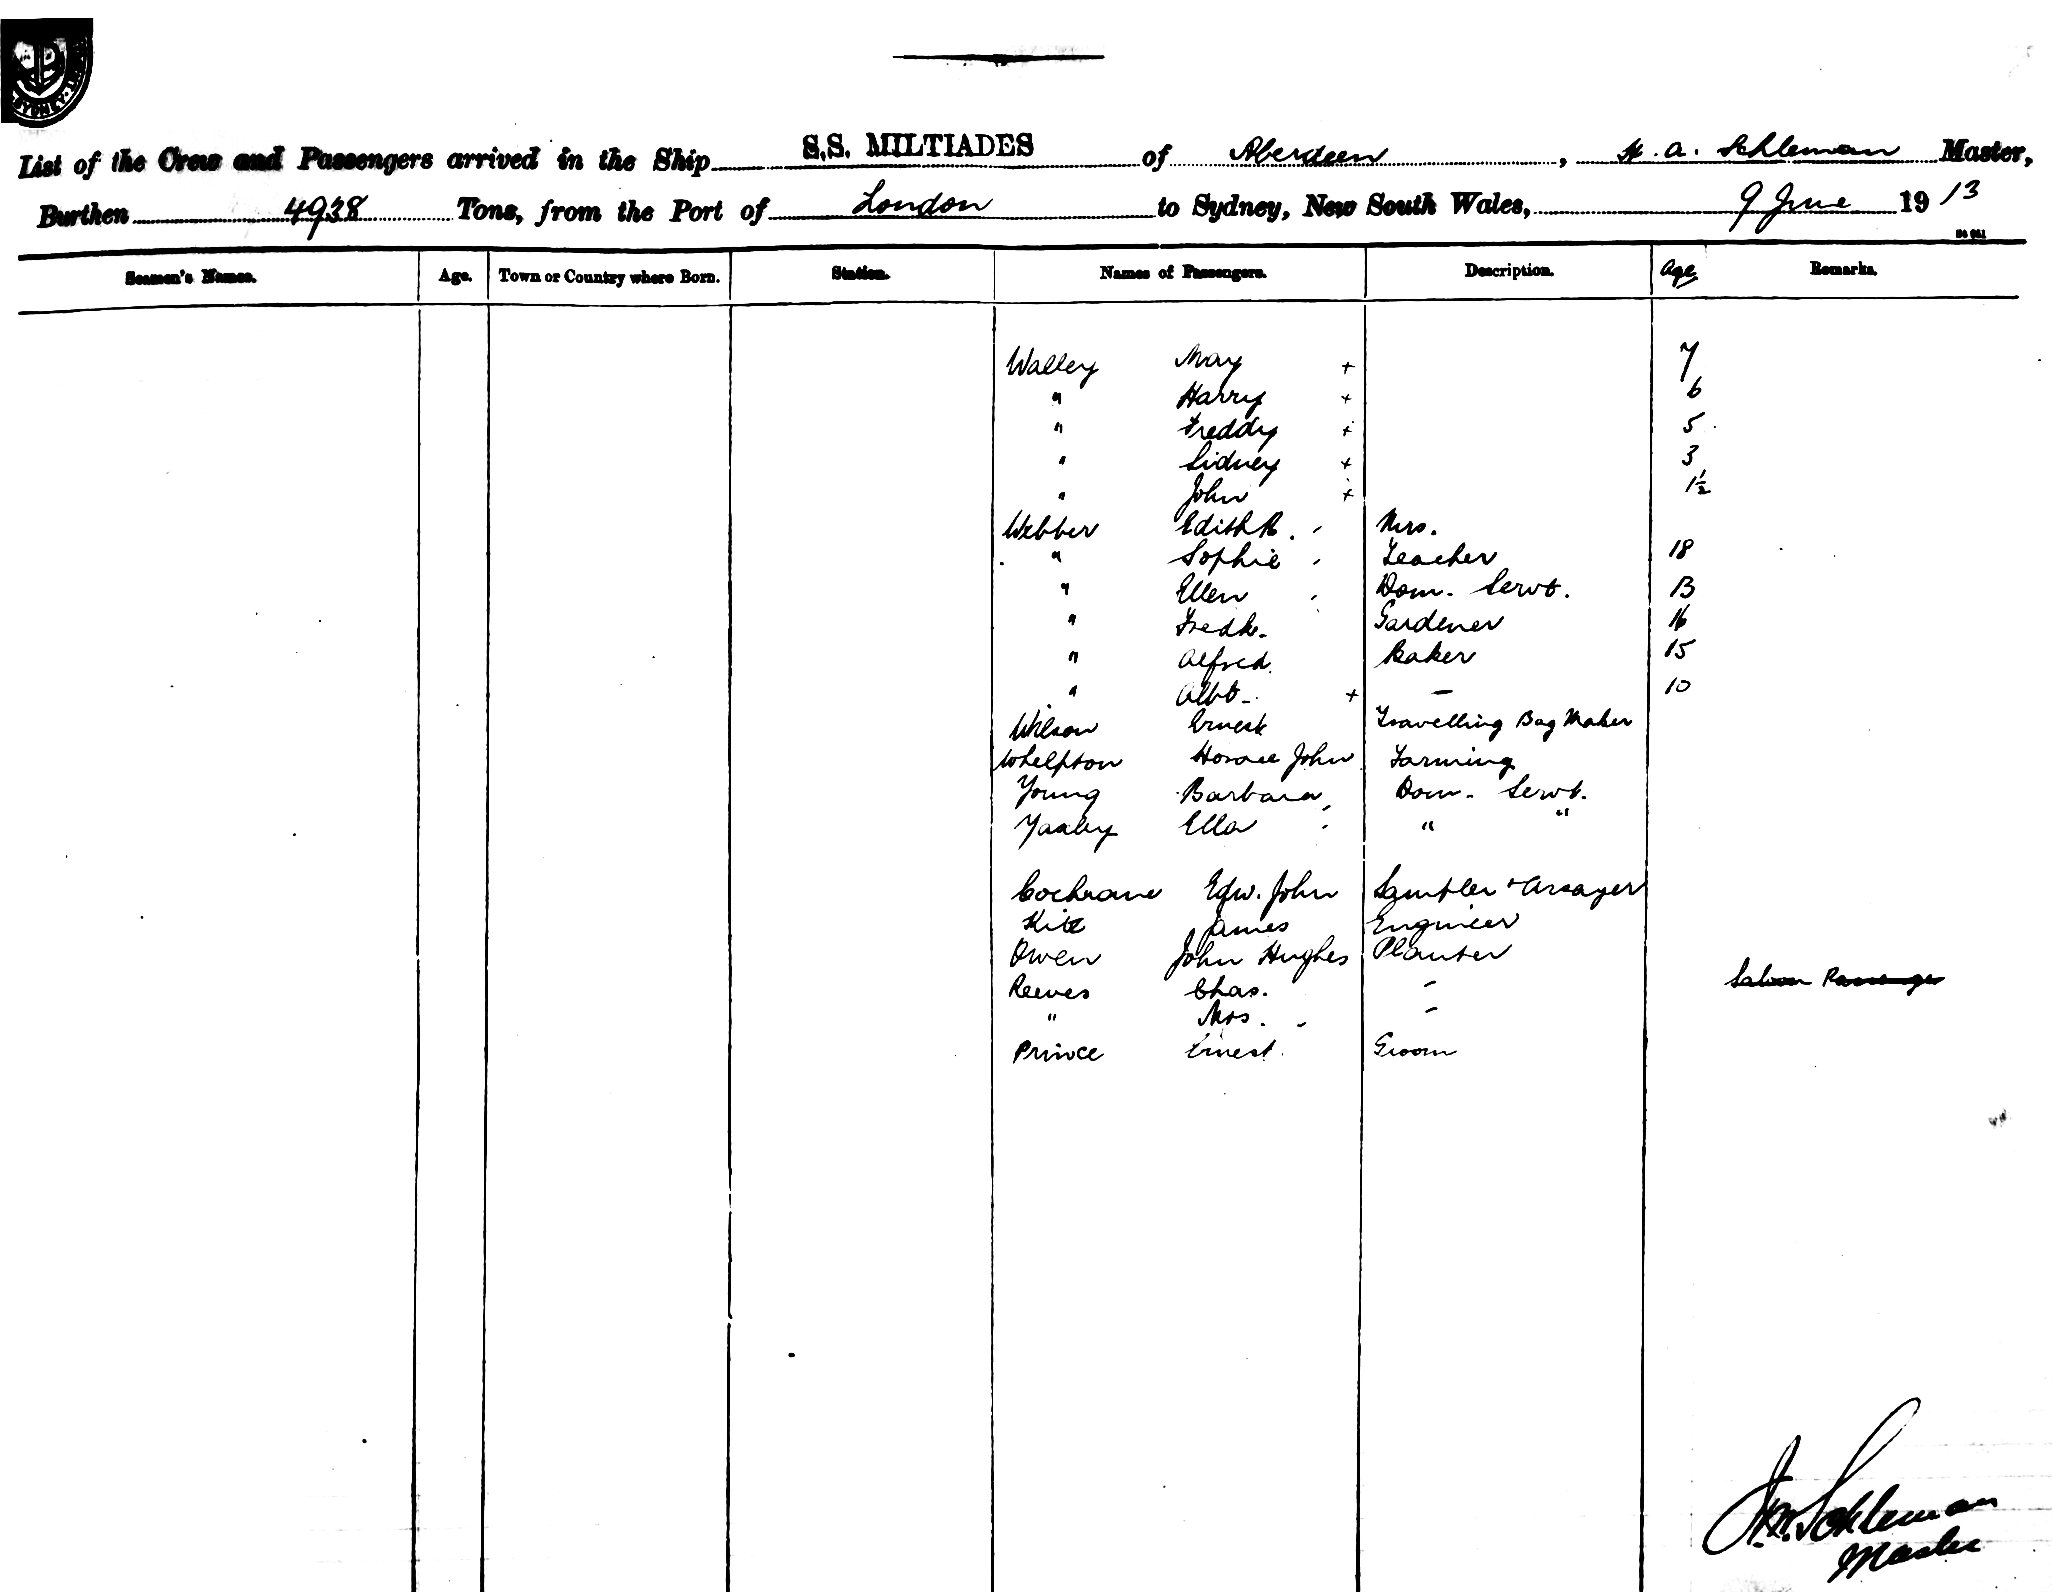 SYDNEY
List of the Crew and Passengers arrived in the Ship S.S. MILTIADES of Aberdeen, A. Schleman Master,
Burthen 4938 Tons, from the Port of London to Sydney, New South Wales, 9 June 1913
Seamen's Names. Age. Town or Country where Born. Station. Names of Passengers. Description. Age Remarks.
Walley May + 7
" Harry + 6
" Freddy + 5
" Sidney + 3
" John + 1½
Webber Edith R. Mrs.
" Sophie Teacher 18
" Ellen Dom. Servt. 13
" Fredk. Gardener 16
" Alfred Baker 15
" Albt. + – 10
Wilson Ernest Travelling Bag Maker
Whelpton Horace John Farming
Young Barbara Dom. Servt.
Yaxley Ella " "
Cochrane Edw. John Sampler & Assayer
Kite James Engineer
Owen John Hughes Planter
Reeves Chas. – Saloon Passenger
" Mrs. –
Prince Ernest Groom
Schleman
Master